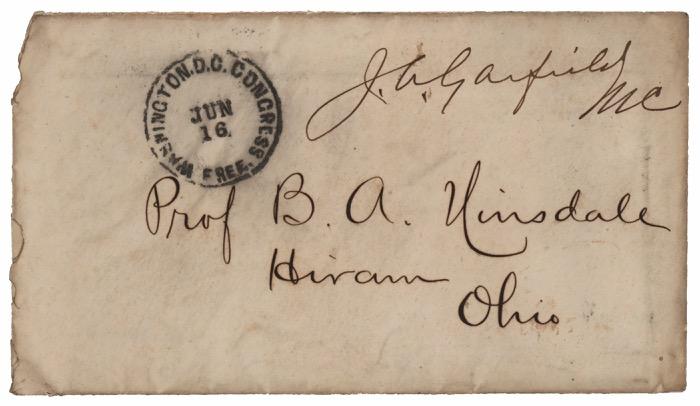 WASHINGTON.D.C. CONGRESS
FREE.
JUN
16.
J. A. Garfield
MC
Prof B. A. Hinsdale
Hiram
Ohio